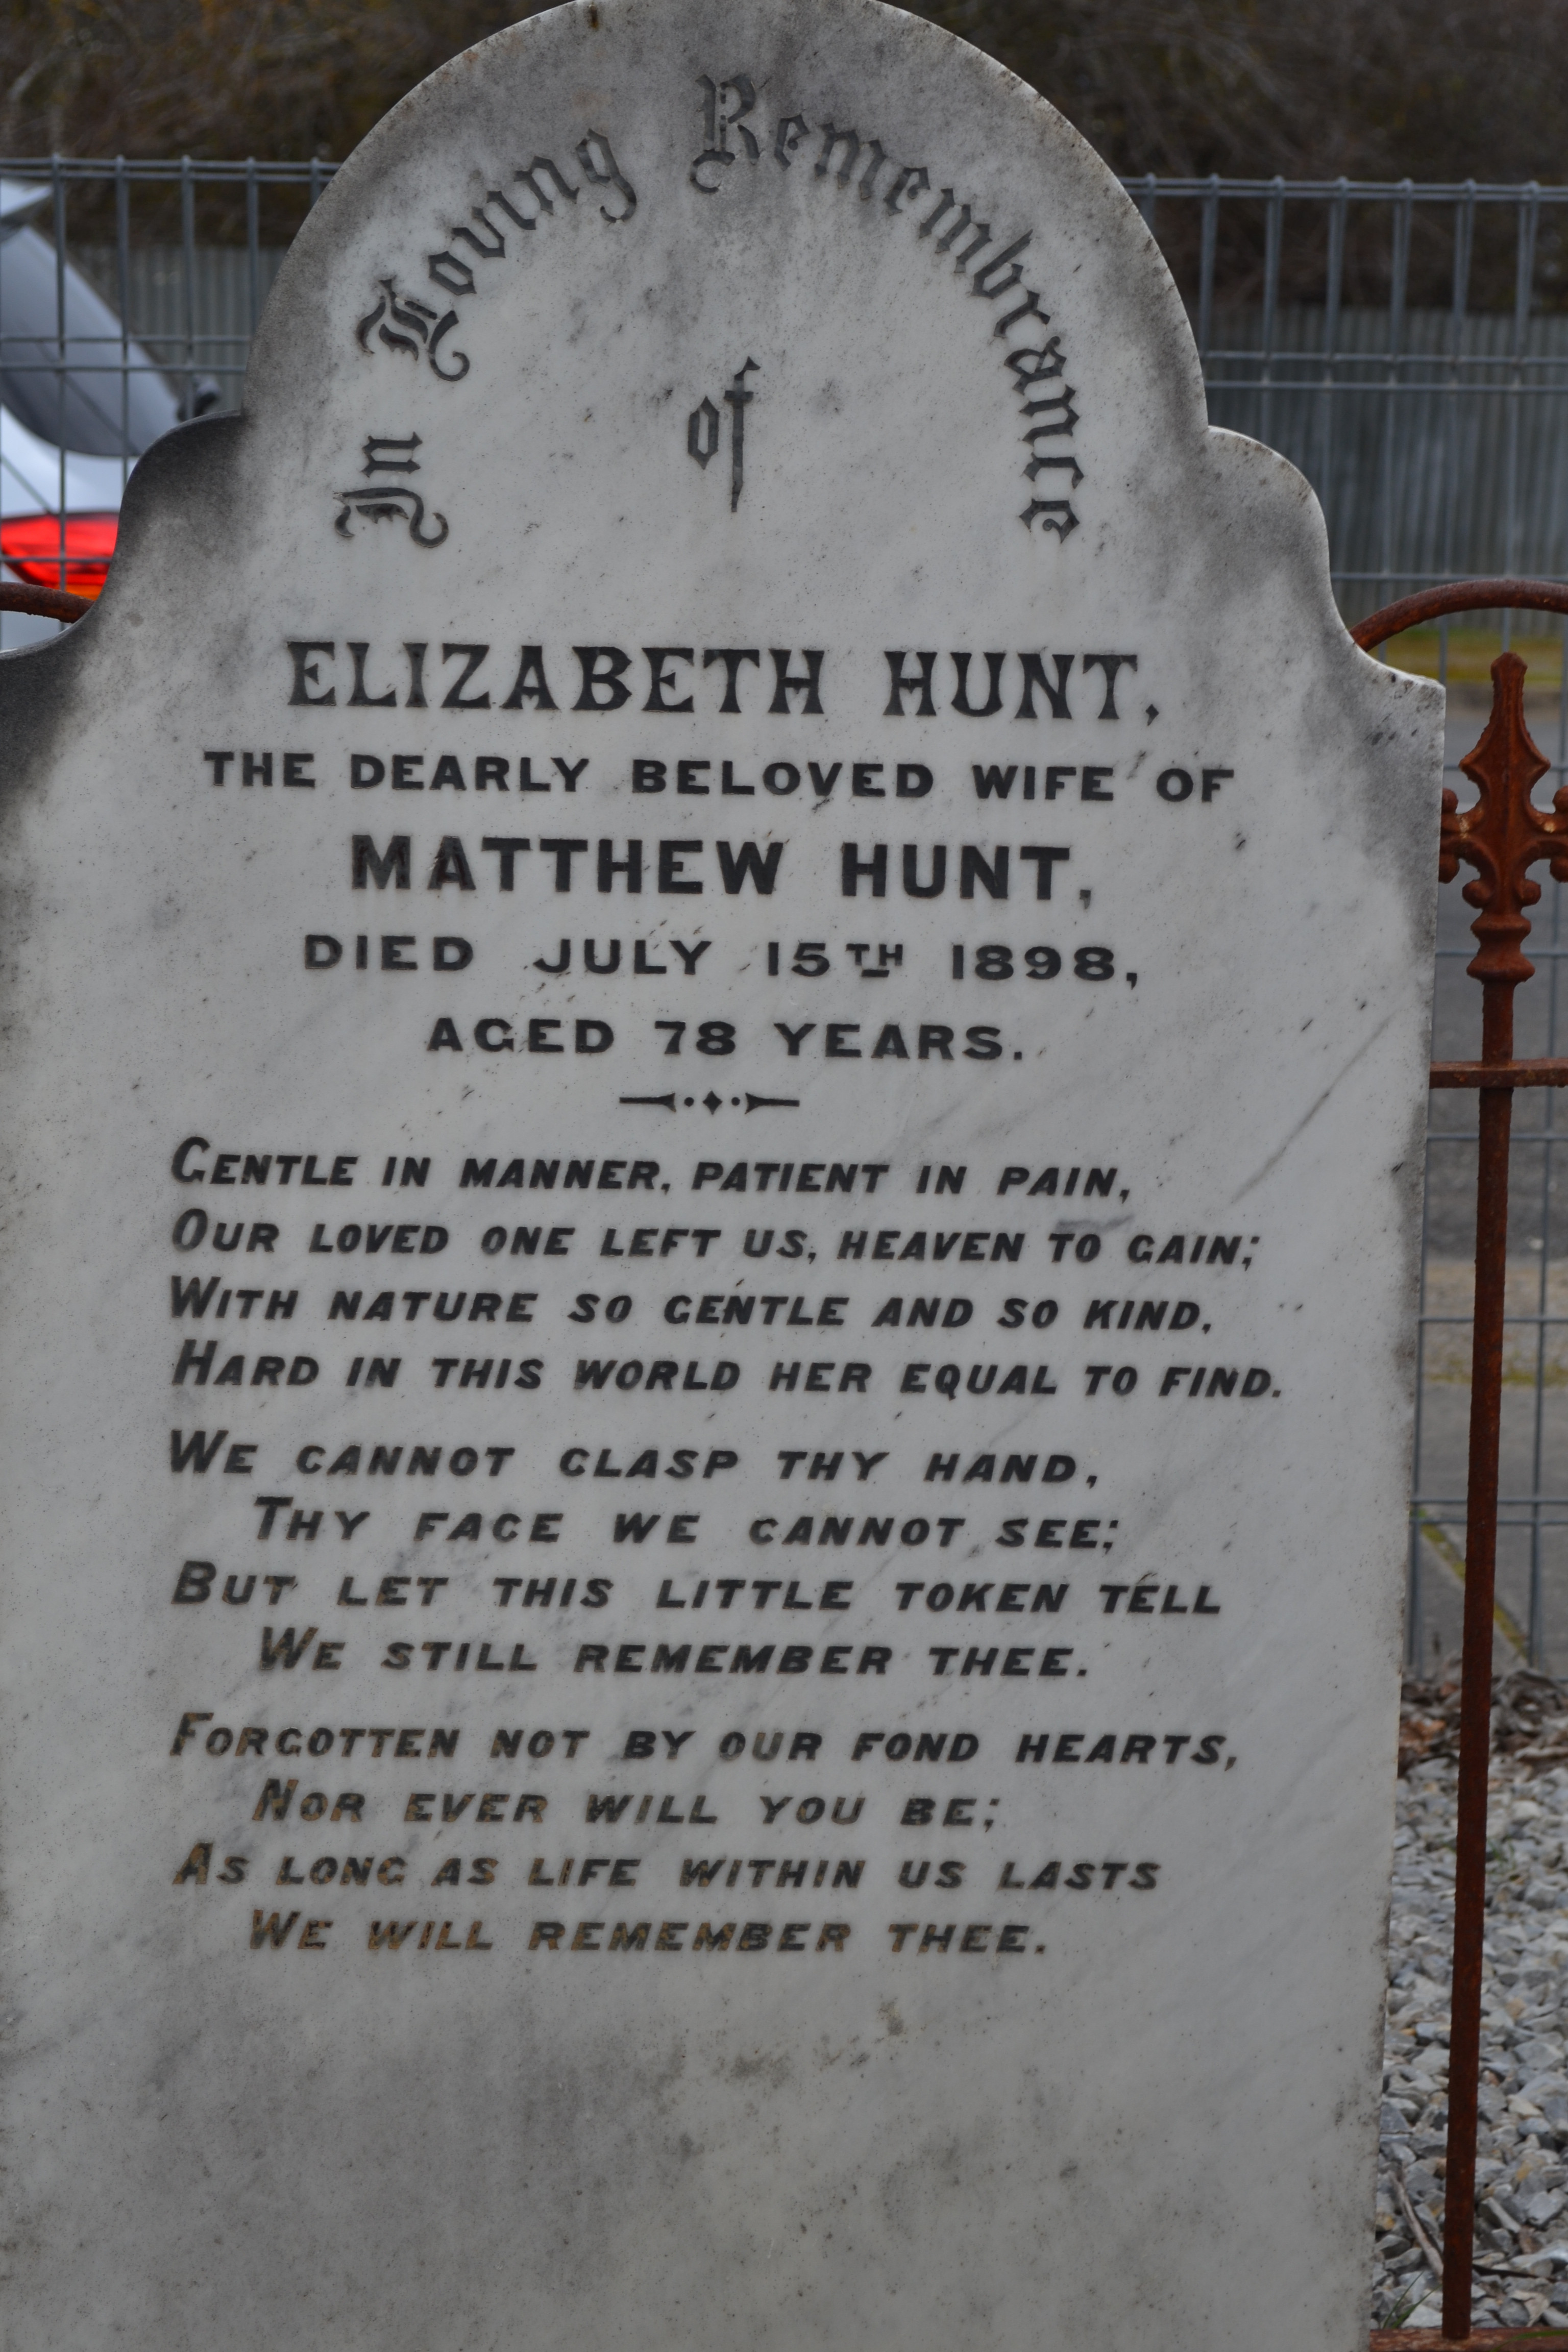 In Loving Remembrance
of
ELIZABETH HUNT,
THE DEARLY BELOVED WIFE OF
MATTHEW HUNT,
DIED JULY 15TH 1898,
AGED 78 YEARS.
GENTLE IN MANNER, PATIENT IN PAIN,
OUR LOVED ONE LEFT US, HEAVEN TO GAIN;
WITH NATURE SO GENTLE AND SO KIND,
HARD IN THIS WORLD HER EQUAL TO FIND.
WE CANNOT CLASP THY HAND,
THY FACE WE CANNOT SEE;
BUT LET THIS LITTLE TOKEN TELL
WE STILL REMEMBER THEE.
FORGOTTEN NOT BY OUR FOND HEARTS,
NOR EVER WILL YOU BE;
AS LONG AS LIFE WITHIN US LASTS
WE WILL REMEMBER THEE.